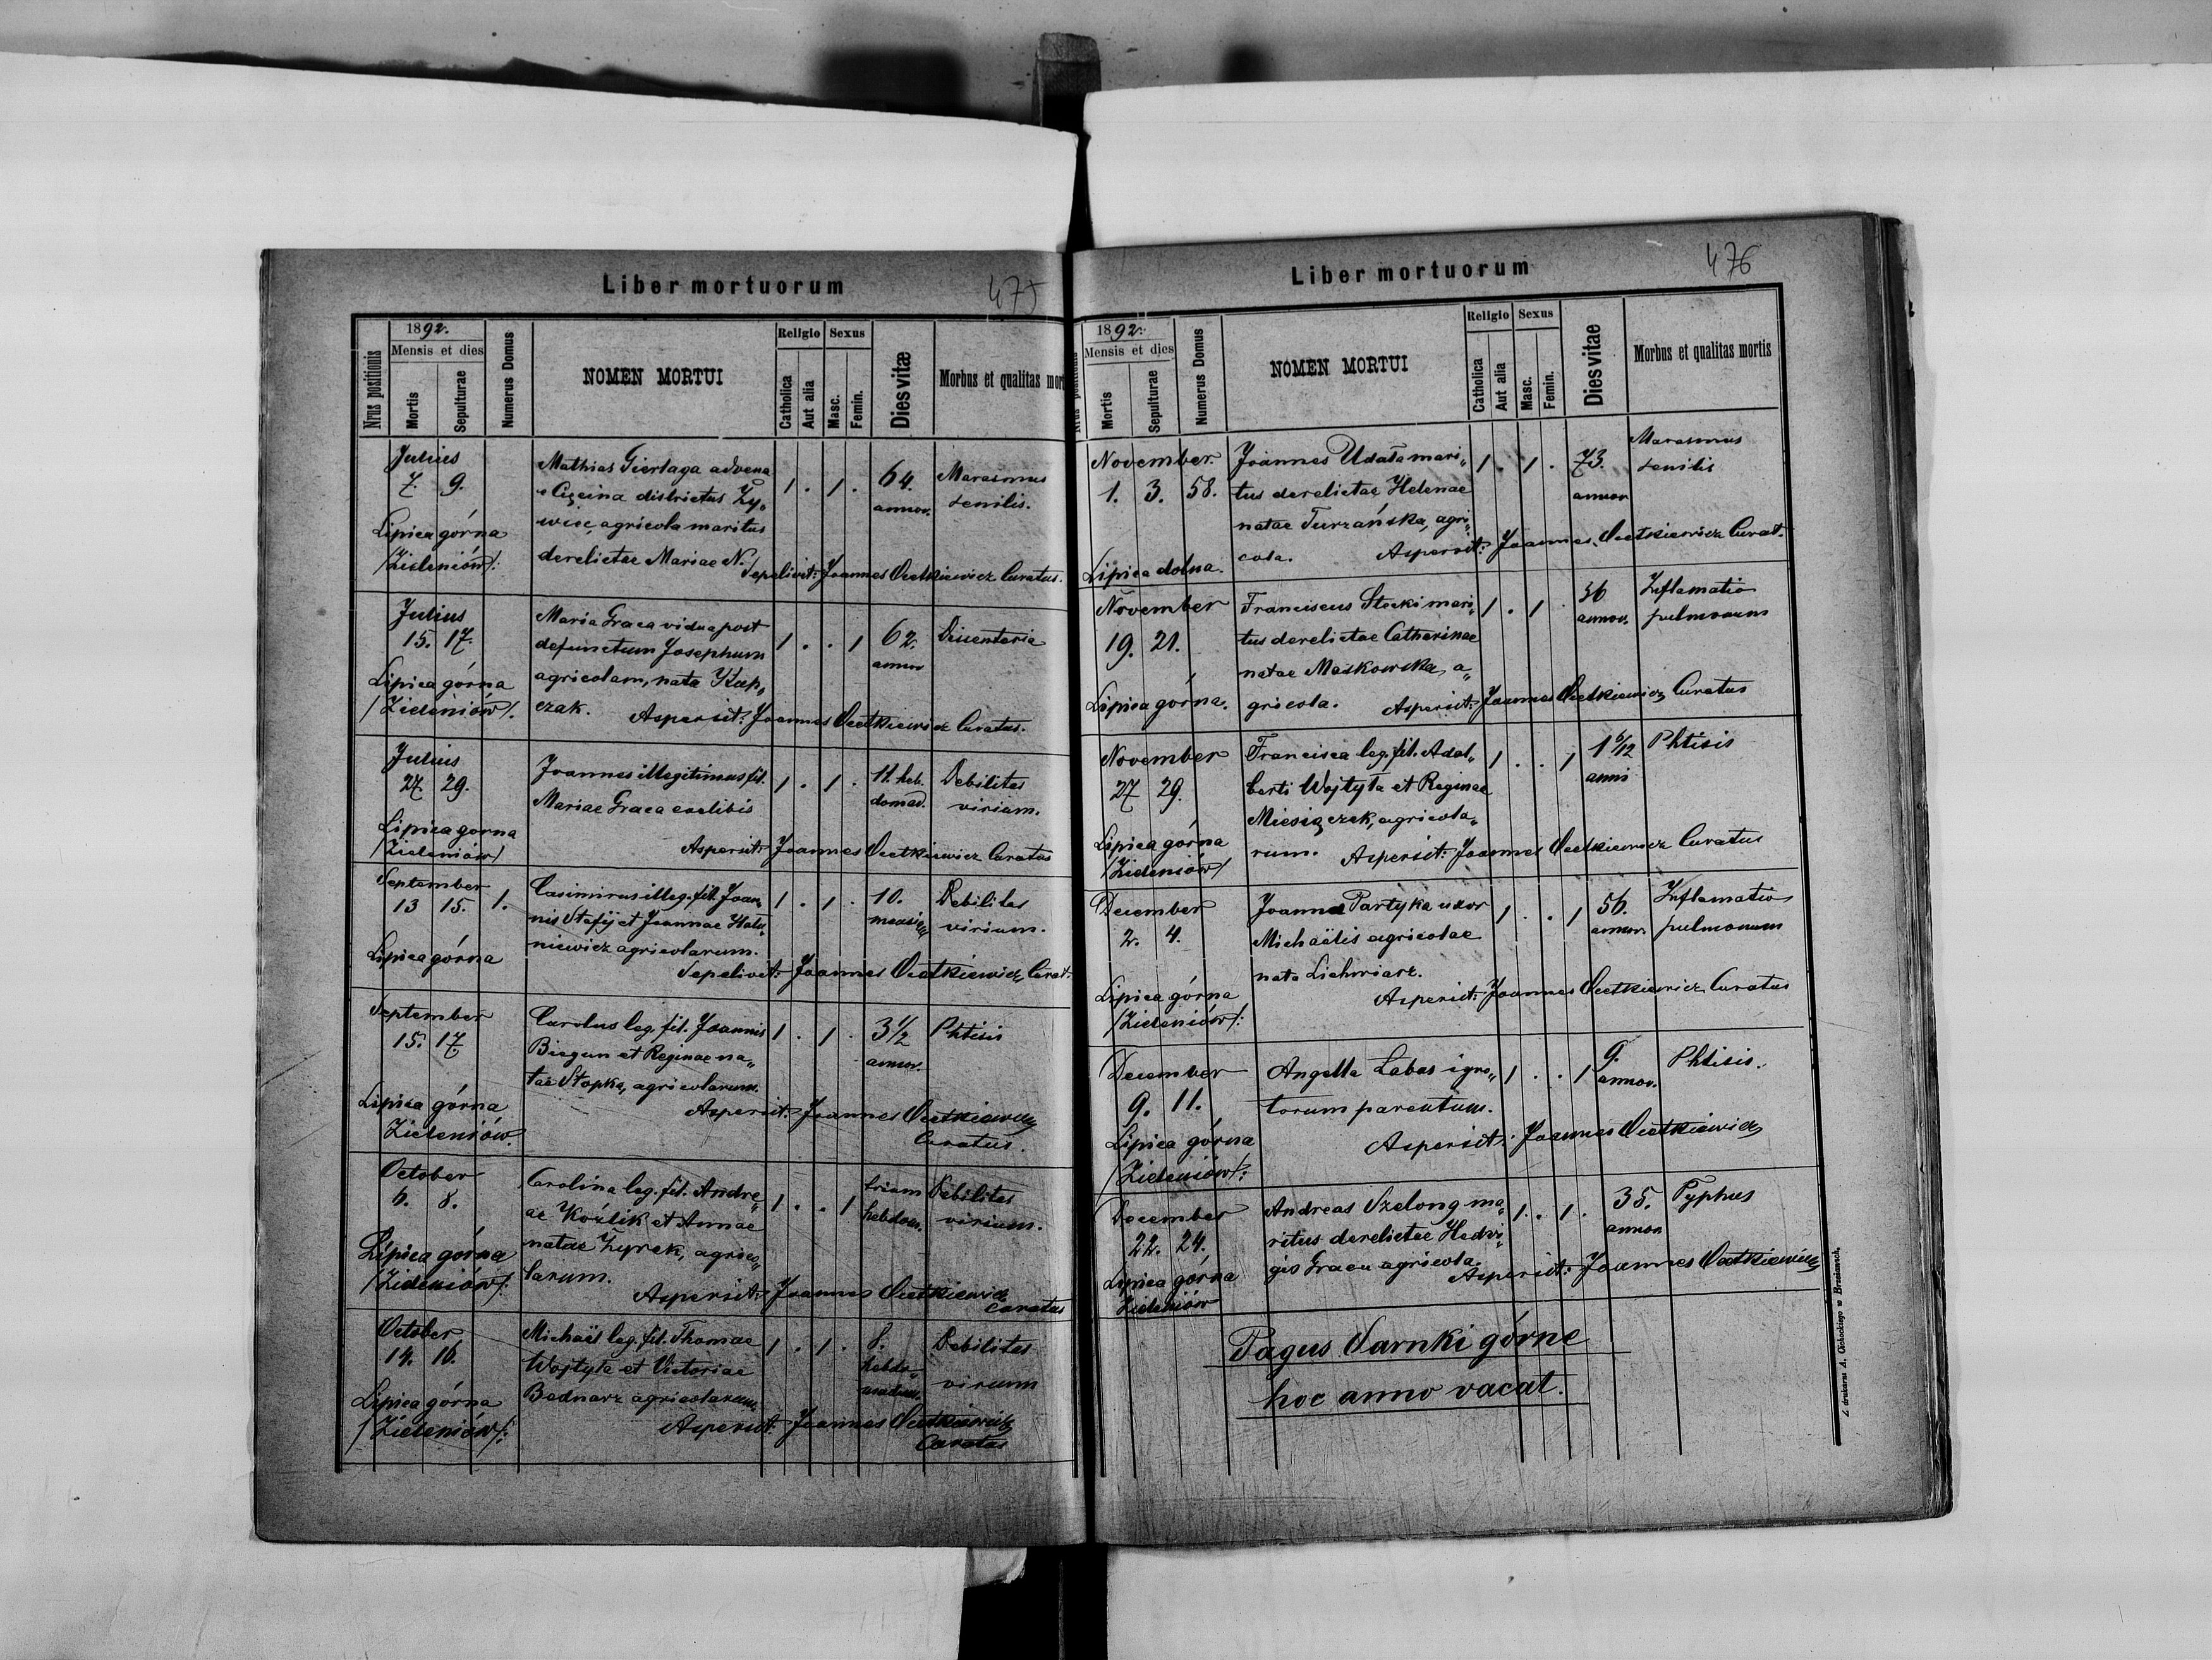 Liber mortuorum
475
Nrus positionis
1892.
Mensis et dies
Mortis
Sepulturae
Numerus Domus
NOMEN MORTUI
Religio
Catholica
Aut alia
Sexus
Masc.
Femin.
Dies vitæ
Morbus et qualitas mor
Julius
7. 9.
Lipica górna
/Zieleniów/:
Mathias Gierlaga advena
e Cięcina districtus Zy„
wiec, agricola maritus
derelictae Mariae N.
1 . 1 .
64.
annor.
Marasmus
senilis.
Sepelivit: Joannes Ocetkiewicz Curatus.
Julius
15. 17.
Lipica górna
/Zieleniów/.
Maria Graca vidua post
defunctum Josephum
agricolam, nata Kup„
czak.
1 . . 1
62.
annor
Dissenteria
Aspersit: Joannes Ocetkiewicz Curatus.
Julius
27. 29.
Lipica gorna
/Zieleniów/
Joannes illegitimus fil.
Mariae Graca coelibis
1 . 1 .
11. heb.
domad.
Debilitas
virium.
Aspersit: Joannes Ocetkiewicz Curatus
September
13 15. 1.
Lipica górna
Casimirus illeg. fil. Joan„
nis Stefij et Joannae Hału„
niewicz agricolarum.
1 . 1 .
10.
mensium
Debilitas
virium.
Sepelivit: Joannes Ocetkiewicz Curat.
September
15. 17
Lipica górna
Zieleniów.
Carolus leg. fil. Joannis
Biegun et Reginae na„
tae Stopka, agricolarum.
1 . 1 .
3 1/2
annor.
Phtisis
Aspersit: Joannes Ocetkiewicz
Curatus.
October
6. 8.
Lipica górna
/Zieleniów/:
Carolina leg. fil. Andre„
ae Koźlik et Annae
natae Zyrek, agrico„
larum.
1 . . 1
trium
hebdom.
Debilitas
virium.
Aspersit: Joannes Ocetkiewicz
Curatus
October
14. 16.
Lipica górna
/Zieleniów/:
Michaël leg. fil. Thomae
Wojtyła et Victoriae
Bednarz agricolarum.
1 . 1 .
8.
hebdo„
madum.
Debilitas
virium
Aspersit: Joannes Ocetkiewicz
Curatus
Liber mortuorum
476
1892.
Mensis et dies
Mortis
Sepulturae
Numerus Domus
NOMEN MORTUI
Religio
Catholica
Aut alia
Sexus
Masc.
Femin.
Dies vitae
Morbus et qualitas mortis
November.
1. 3. 58.
Lipica dolna.
Joannes Udała mari„
tus derelictae Helenae
natae Turzańska, agri„
cola.
1 . 1 .
73.
annor
Marasmus
senilis
Aspersit: Joannes Ocetkiewicz Curat.
November
19. 21.
Lipica górna.
Franciscus Stocki mari„
tus derelictae Catharinae
natae Maskowska, a„
gricola.
1 . 1
36
annor.
Inflamatio
pulmonum
Aspersit: Joannes Ocetkiewicz Curatus
November
27 29.
Lipica górna
/Zieleniów/
Francisca leg. fil. Adal„
berti Wojtyła et Reginae
Miesiączek, agricola„
rum.
1 . . 1
1 6/12
anni
Phtisis
Aspersit: Joannes Ocetkiewicz Curatus
December
2. 4.
Lipica górna
/Zieleniów/:
Joanna Partyka uxor
Michaëlis agricolae
nata Lichwiarz.
1 . . 1
56.
annor.
Inflamatio
pulmonum
Aspersit: Joannes Ocetkiewicz Curatus
December
9. 11.
Lipica górna
/Zieleniów/:
Angella Labas igno„
torum parentum.
1 . . 1
9.
annor.
Phtisis.
Aspersit: Joannes Ocetkiewicz
December
22. 24.
Lipica górna
Zieleniów
Andreas Szelong ma„
ritus derelictae Hedvi„
gis Graca agricola.
1 . 1 .
35.
annor
Typhus
Aspersit: Joannes Ocetkiewicz
Pagus Sarnki górne
hoc anno vacat.
Z drukarni A. Cichockiego w Brzeżanach.